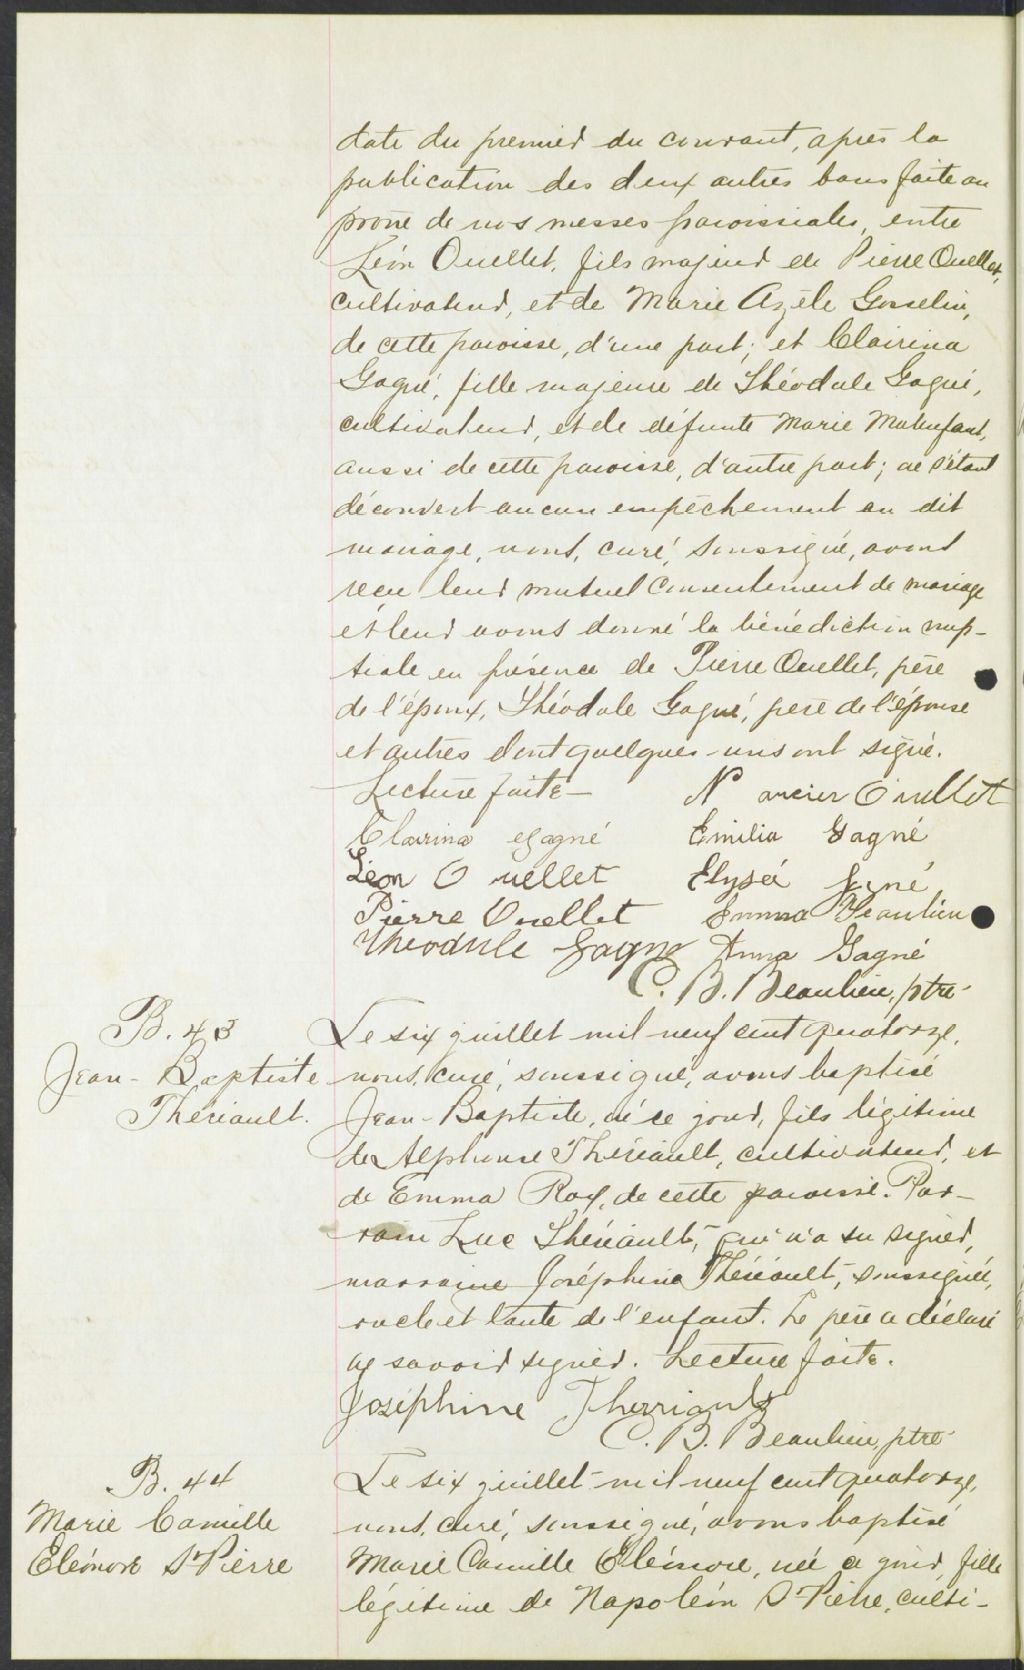 date du premier du courant, après la
publication des deux autres bans faite au
prône de nos messes paroissiales, entre
Léon Ouellet, fils majeur de Pierre Ouellet,
cultivateur, et de Marie Azèle Gosselin,
de cette paroisse, d'une part; et Clairina
Gagné, fille majeure de Théodule Gagné,
cultivateur, et de défunte Marie Malenfant,
aussi de cette paroisse, d'autre part; ne s'étant
découvert aucun empêchement au dit
mariage, nous, curé, soussigné, avons
reçu leur mutuel consentement de mariage
et leur avons donné la bénédiction nup-
tiale en présence de Pierre Ouellet, père
de l'époux, Théodule Gagné, père de l'épouse
et autres dont quelques-uns ont signé.
Lecture faite- Ouellet
Clairina Gagné Emilia Gagné
Léon Ouellet Elysée
Pierre Ouellet Emma Beaulieu
Théodule Gagné Anna Gagné
C. B. Beaulieu, ptre
B. 43
Jean-Baptiste
Thériault.
Le six juillet mil neuf cent quatorze,
nous, curé, soussigné, avons baptisé
Jean-Baptiste, né ce jour, fils légitime
de Alphonse Thériault, cultivateur, et
de Emma Roy, de cette paroisse. Par-
rain Luc Thériault, qui n'a su signer,
marraine Joséphine Thériault, soussignée,
oncle et tante de l'enfant. Le père a déclaré
ne savoir signer. Lecture faite.
Joséphine Therriault
C. B. Beaulieu, ptre
B. 44
Marie Camille
Eléonore St Pierre
Le six juillet mil neuf cent quatorze,
nous, curé, soussigné, avons baptisé
Marie Camille Eléonore, née ce jour, fille
légitime de Napoléon St Pierre, culti-